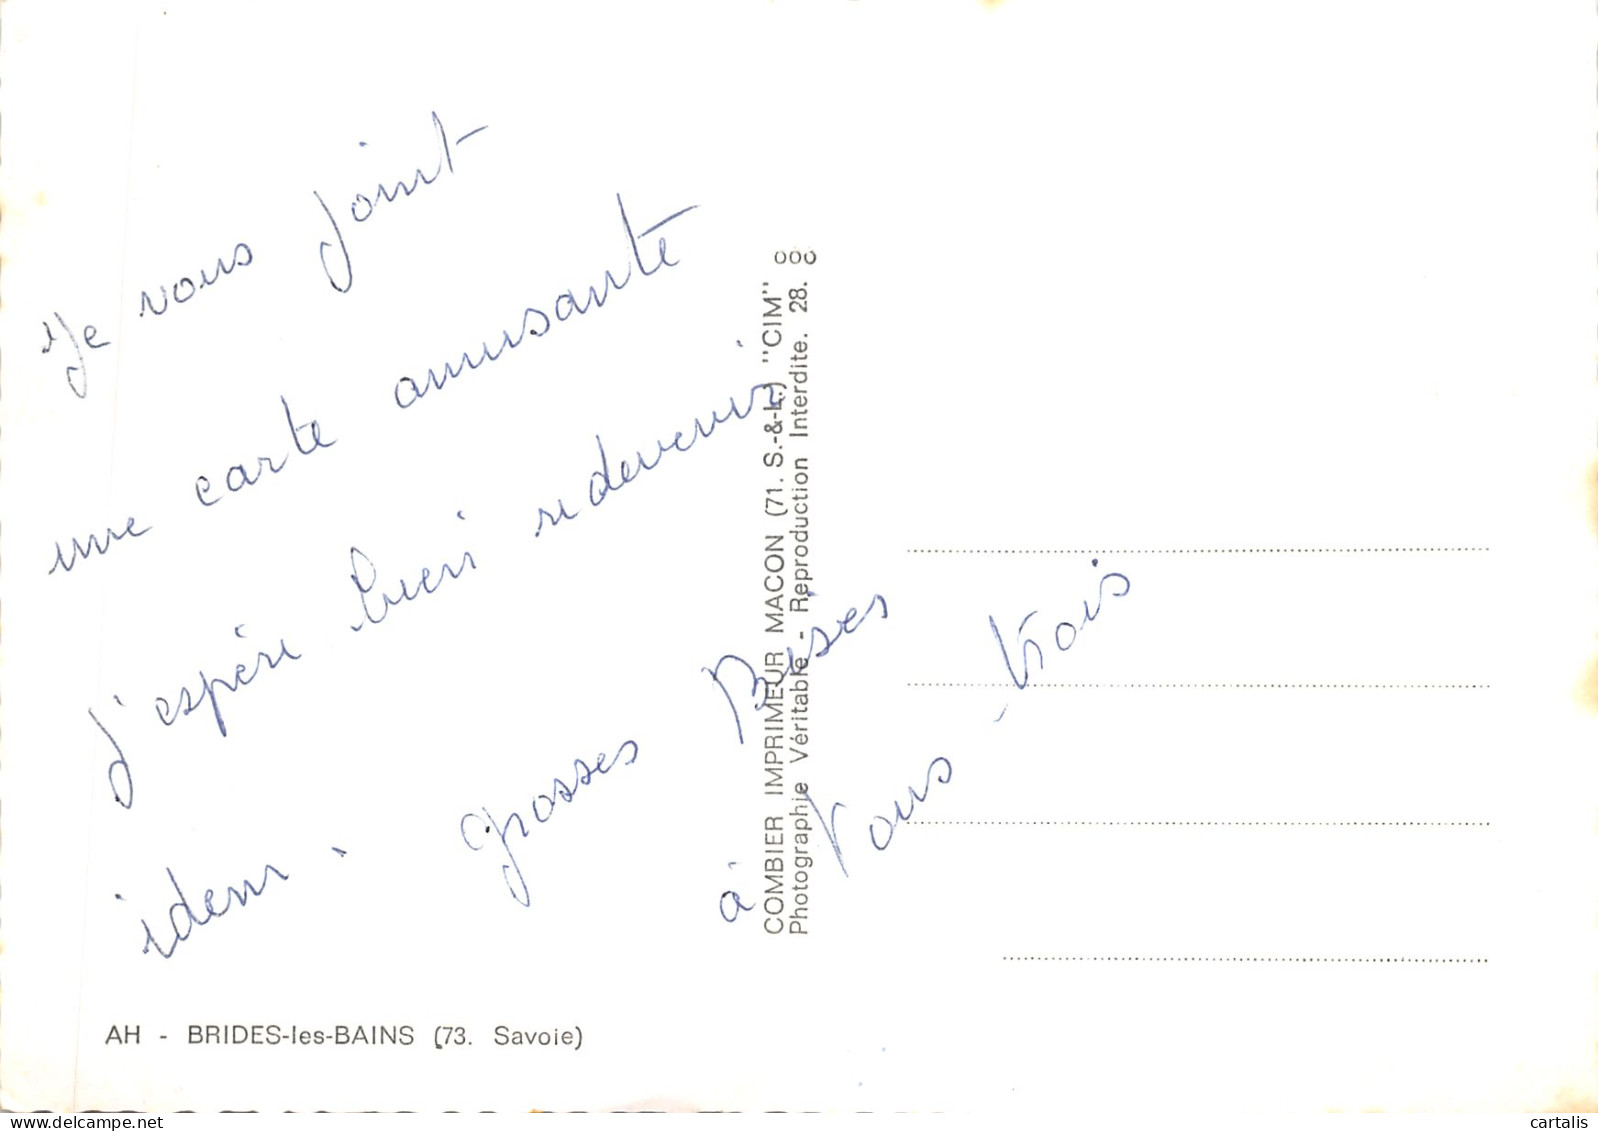 Je vous joint
une carte amusante
j'espère bien redevenir
idem. grosses Bises
à Vous trois
COMBIER IMPRIMEUR MACON (71. S.-&-L.) "CIM"
Photographie Véritable - Reproduction Interdite. 28.
AH - BRIDES-les-BAINS (73. Savoie)
cartalis